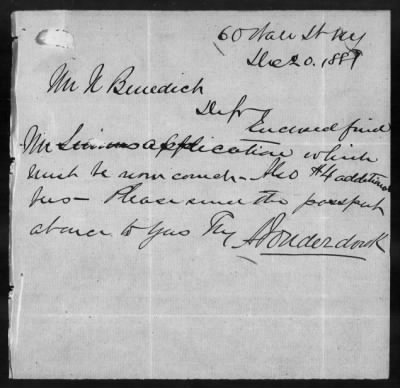 60 Wall St NY
Dec 20. 1889
Mr N Benedict
Dr Sir
Enclosed find
Mr Simons application which
must be now correct. Also $4 additional
fees - Please issue the passport
at once to yours Try A Ponderdonk